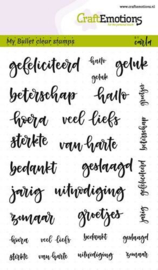 www.craftemotions.nl
CraftEmotions
My Bullet clear stamps
carla
gefeliciteerd hallo geluk
geluk
beterschap hallo
hoera veel liefs
sterkte van harte
bedankt geslaagd
jarig uitnodiging
zomaar groetjes
groetjes
beterschap
gefeliciteerd
jarig
hoera veel liefs bedankt geslaagd
sterkte van harte uitnodiging zomaar